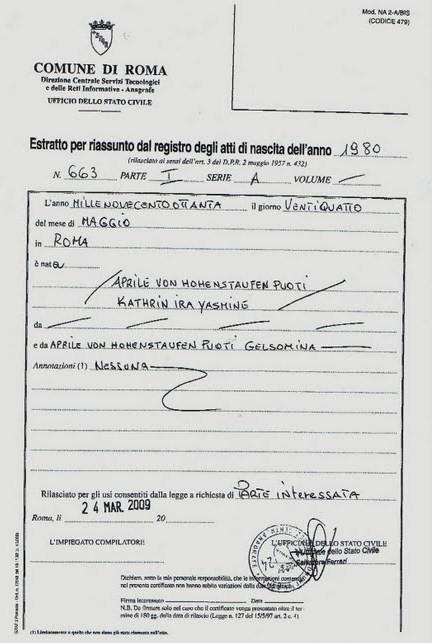 Mod. NA 2-A/BIS
(CODICE 479)
COMUNE DI ROMA
Direzione Centrale Servizi Tecnologici
e delle Reti Informative - Anagrafe
UFFICIO DELLO STATO CIVILE
Estratto per riassunto dal registro degli atti di nascita dell'anno 1980
(rilasciato ai sensi dell'art. 3 del D.P.R. 2 maggio 1957 n. 432)
N. 663 PARTE I SERIE A VOLUME —
L'anno MILLENOVECENTOOTTANTA il giorno VENTIQUATTO
del mese di MAGGIO
in ROMA
è nata
APRILE VON HOHENSTAUFEN PUOTI
KATHRIN IRA YASMINE
da — — — —
e da APRILE VON HOHENSTAUFEN PUOTI GELSOMINA —
Annotazioni (1) NESSUNA
Rilasciato per gli usi consentiti dalla legge a richiesta di PARTE INTERESSATA
24 MAR. 2009
Roma, li 20
L'IMPIEGATO COMPILATORE
L'UFFICIALE DELLO STATO CIVILE
Ufficiale dello Stato Civile
Ferrari
Dichiaro, sotto la mia personale responsabilità, che le informazioni contenute
nel presente certificato non hanno subito variazioni dalla data del
Firma Data
N.B. Da firmare solo nel caso che il certificato venga presentato oltre il
di 180 gg. dalla data di rilascio (Legge n. 127 del 15/5/97 art. 2 c. 4)
(1) Limitatamente a quelle che non siano già state riassunte nell'atto.